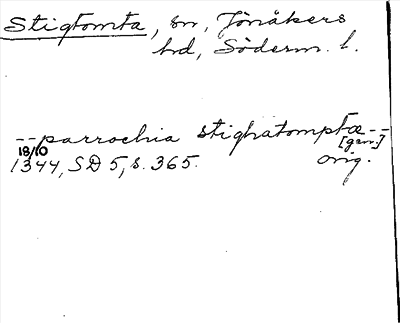 Stigtomta, sn, Jönåkers
hd, Söderm. l.
-- parrochia stighatomptæ --
[gen.]
18/10
1344, SD 5, s. 365. orig.